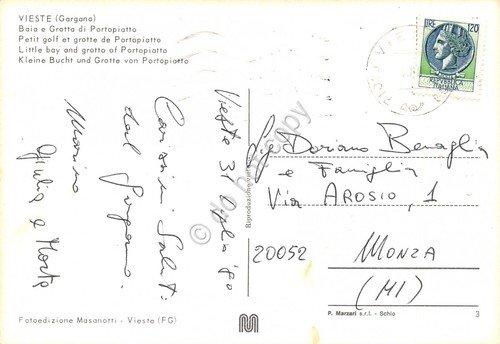 VIESTE (Gargano)
Baia e Grotta di Portopiatto
Petit golf et grotte de Portopiatto
Little bay and grotto of Portopiatto
Kleine Bucht und Grotte von Portopiatto
LIRE 120
REPUBBLICA
ITALIANA
VIESTE
Vieste 31
Carissimi Saluti
dal Gargano.
Marino
Giulia e
Sig. Doriano Benaglia
e Famiglia
Via AROSIO, 1
20052 MONZA
(MI)
Riproduzione vietata
do not copy
Fotoedizione Masanotti - Vieste (FG)
P. Marzari s.r.l. - Schio
3